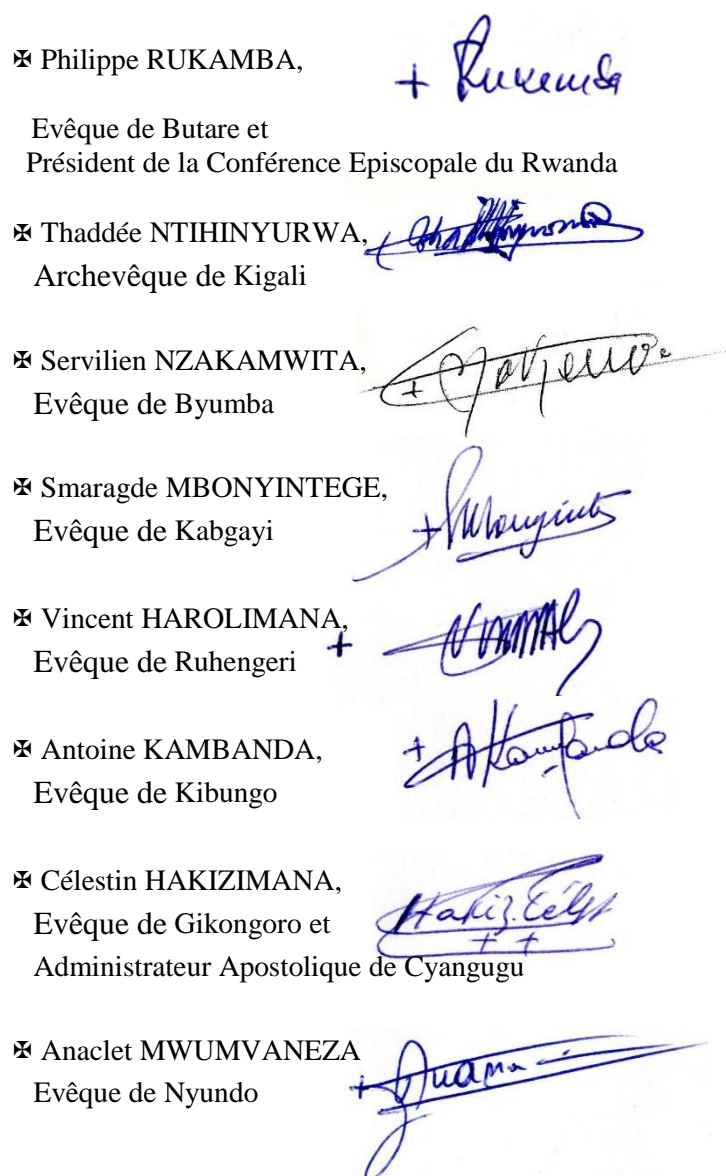 ✠ Philippe RUKAMBA,
Evêque de Butare et
Président de la Conférence Episcopale du Rwanda
✠ Thaddée NTIHINYURWA,
Archevêque de Kigali
✠ Servilien NZAKAMWITA,
Evêque de Byumba
✠ Smaragde MBONYINTEGE,
Evêque de Kabgayi
✠ Vincent HAROLIMANA,
Evêque de Ruhengeri
✠ Antoine KAMBANDA,
Evêque de Kibungo
✠ Célestin HAKIZIMANA,
Evêque de Gikongoro et
Administrateur Apostolique de Cyangugu
✠ Anaclet MWUMVANEZA
Evêque de Nyundo